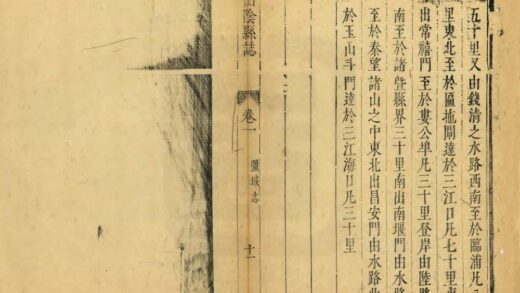 五十里又由錢清之水路西南至於臨浦凡
里東北至於匾拖閘達於三江口凡七十里
出常禧門至於婁公埠凡三十里登岸由陸路
南至於諸暨縣界三十里南出南堰門由水路
至於秦望諸山之中東北出昌安門由水路北
於玉山斗門達於三江海口凡三十里
山陰縣誌
卷一
疆域志
十一